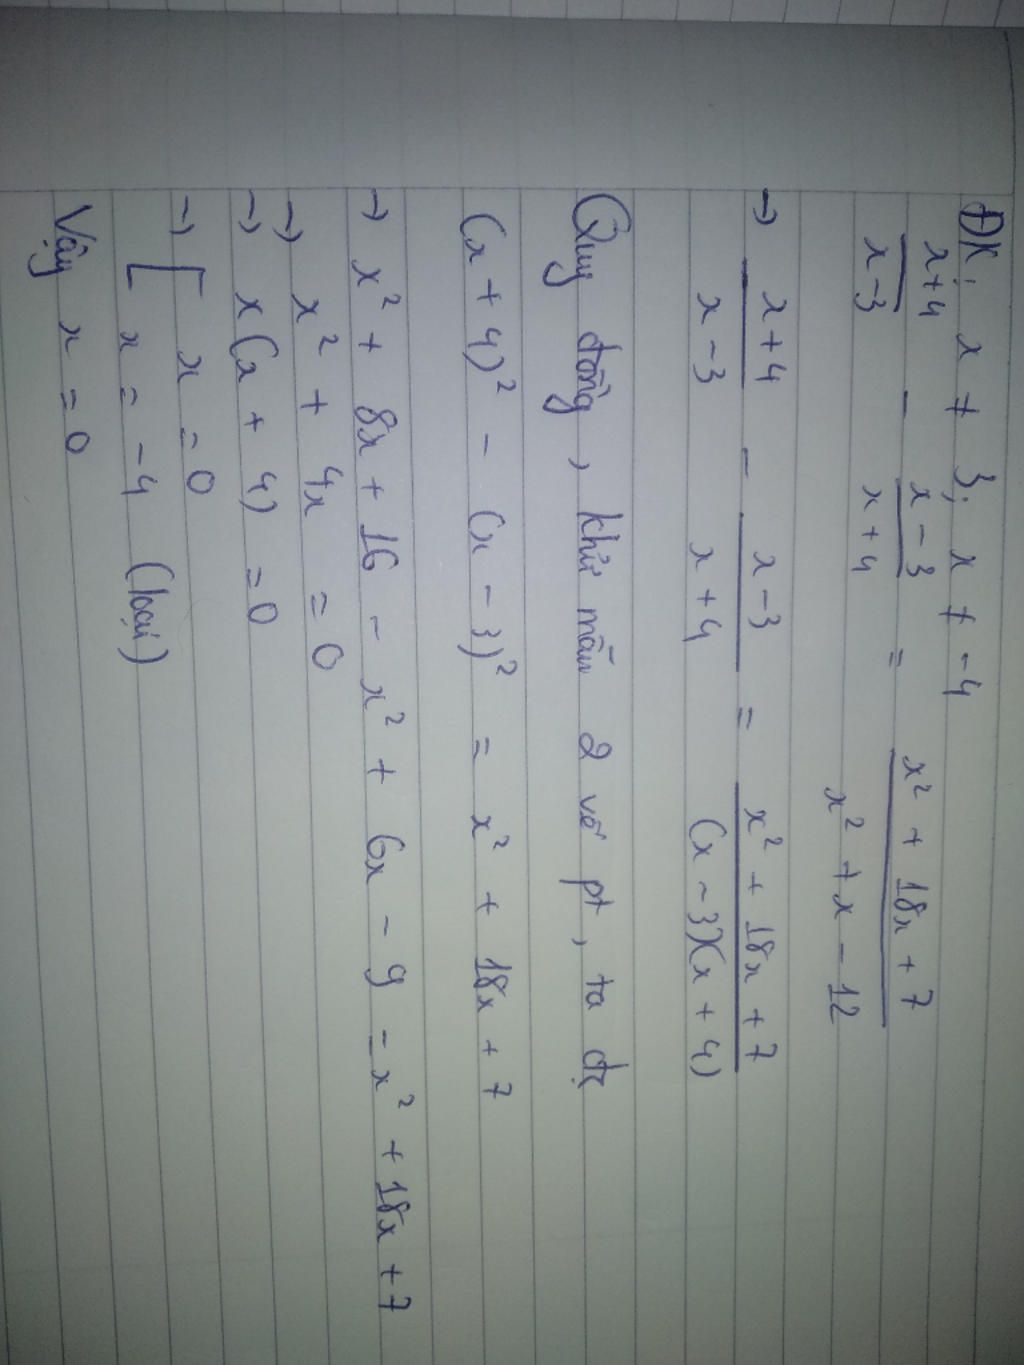 ĐK: x ≠ 3; x ≠ -4
x+4/x-3 - x-3/x+4 = x² + 18x + 7/x² + x - 12
→ x+4/x-3 - x-3/x+4 = x² + 18x + 7/(x-3)(x+4)
Quy đồng, khử mẫu 2 vế pt, ta đc
(x+4)² - (x-3)² = x² + 18x + 7
→ x² + 8x + 16 - x² + 6x - 9 = x² + 18x + 7
→ x² + 4x = 0
→ x(x + 4) = 0
→ [ x = 0
x = -4 (loại)
Vậy x = 0